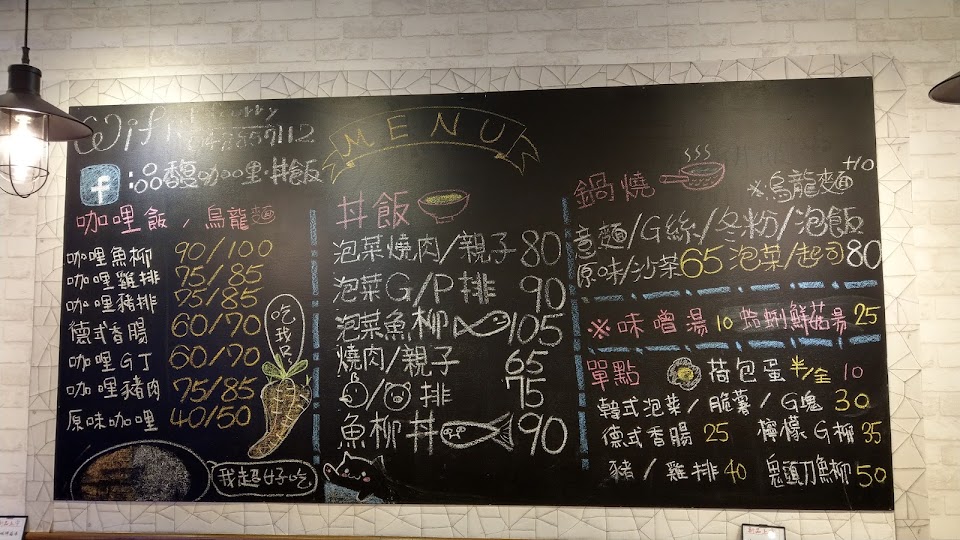 Wifi
MENU
f：品馥咖哩·丼飯
咖哩飯/烏龍麵
咖哩魚柳 90/100
咖哩雞排 75/85
咖哩豬排 75/85
德式香腸 60/70
咖哩G丁 60/70
咖哩豬肉 75/85
原味咖哩 40/50
吃我
我超好吃
丼飯
泡菜燒肉/親子 80
泡菜G/P排 90
泡菜魚柳 105
燒肉/親子 65
/ 排 75
魚柳丼 90
鍋燒
※烏龍麵+10
意麵/G絲/冬粉/泡飯
原味/沙茶65 泡菜/起司80
※味噌湯10 蛤蜊鮮菇湯 25
單點 荷包蛋 半/全 10
韓式泡菜/脆薯/G塊 30
德式香腸 25 檸檬G柳 35
豬/雞排 40 鬼頭刀魚柳 50